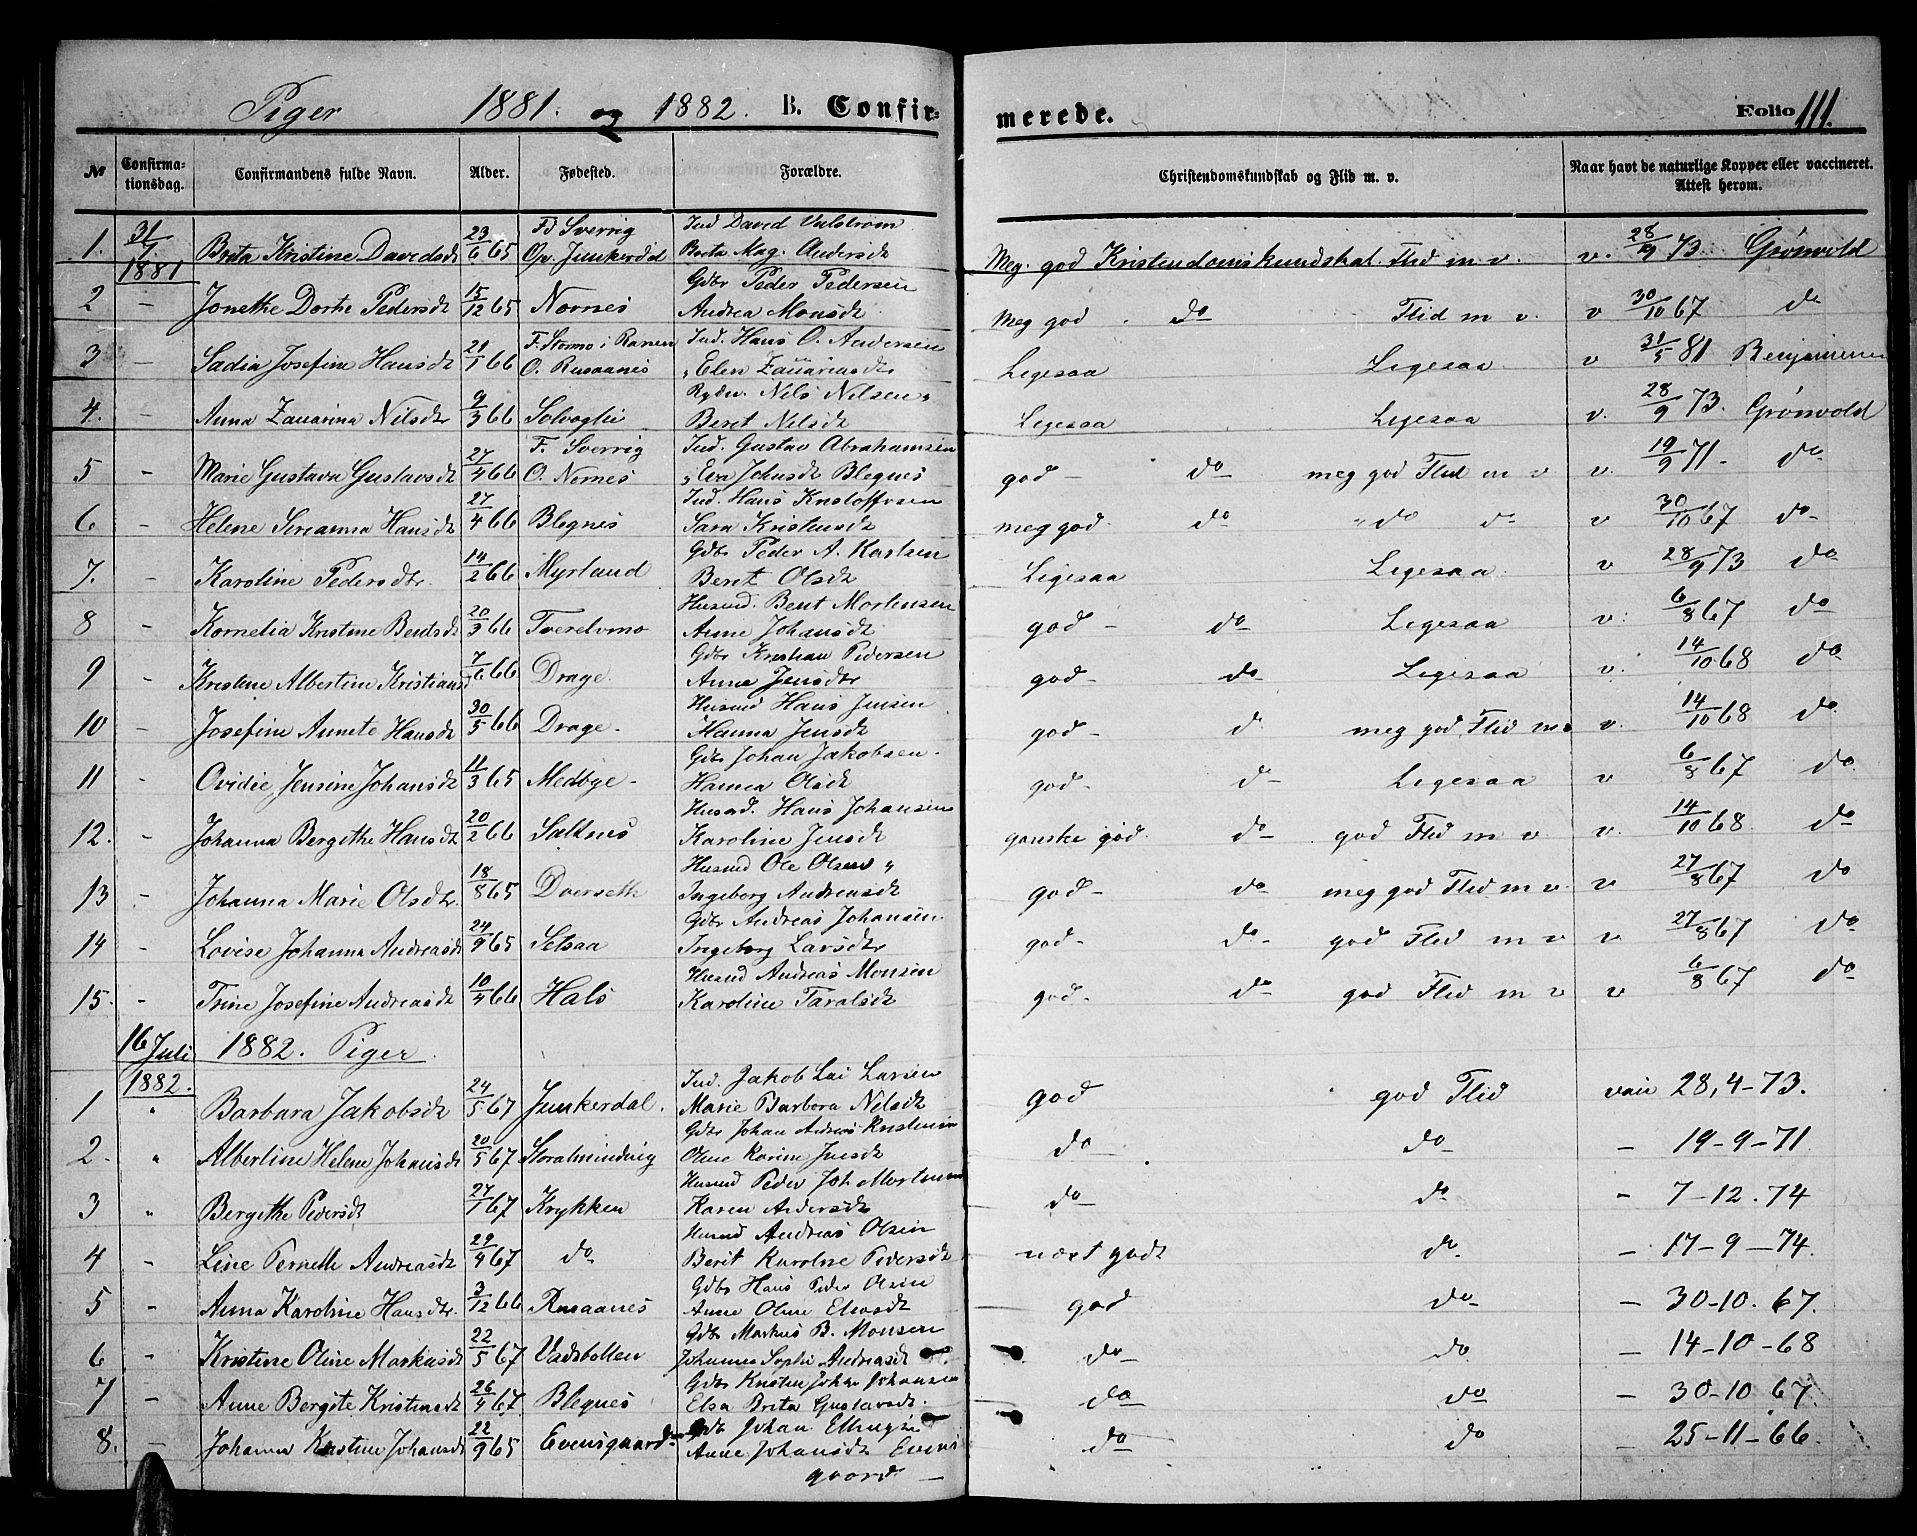 Piger 1881. og 1882. B. Confirmerede. Folio 111.
№ Confirmationsdag. Confirmandens fulde Navn. Alder. Fødested. Forældre. Christendomskundskab og Flid m. v. Naar havt de naturlige Kopper eller vaccineret. Attest herom.
31/7 1881
F. Sverrig Ind David Valstrøm
1. Brita Kristine Davidsdt 23/6 65 Op. Junkerdal Brita Mag. Andersdt Meg. god Kristendomskundskab. Flid m v. v. 28/9 73 Grønvold
Gdbr Peder Pedersen
2 – Jonethe Dorthe Pedersdt 15/12 65 Nornes Andrea Monsdt Meg god do Flid m v. v 30/10 67 do
F. Stormo i Ranen Ind. Hans O. Andersen
3 – Sadia Josefine Hansdt 29/1 66 O. Rusaanes Elen Zakariasdtr Ligesaa Ligesaa v 31/5 81 Benjaminsen
Rydn. Nils Nilsen
4. – Anna Zakarina Nilsdt 9/3 66 Solvaglie Beret Nilsdt Ligesaa Ligesaa v. 28/9 73. Grønvold
F. Sverrig Ind. Gustav Abrahamsen
5 – Marie Gustava Gustavsdt 27/4 66 O. Nornes Eva Johnsdt Blegnes god – do meg god Flid m v v. 19/9 71 – do
Ind. Hans Kristoffersen
6 – Helene Sirianna Hansdt 27/4 66 Blegnes Sara Kristensdt meg god. do do do v 30/10 67 do
Gdbr Peder A. Karlsen
7. – Karoline Pedersdtr. 14/2 66 Myrland Berit Olsdt Ligesaa Ligesaa v 28/9 73 do
Husmd. Bent Mortensen
8 – Kornelia Kristine Bentsdt 20/3 66 Tverelvmo Anne Johansdt god – do Ligesaa v. 6/8 67 do
Gdbr Kristian Pedersen
9 – Kristine Albertine Kristiansd 7/6 66 Drage. Anne Jensdtr god – do Ligesaa v. 14/10 68 do
Husmd Hans Jensen
10 – Josefine Annete Hansdt 30/5 66 Drage – Hanna Jensdt god – do meg god Flid m v v. 14/10 68 do
Gdbr Johan Jakobsen
11 – Ovidie Jensine Johansdt 11/3 65 Medbye – Hanna Olsdt god – do Ligesaa v 6/8 67 do.
Husmd. Hans Johansen
12. – Johanna Bergithe Hansdt 20/2 66 Saltnes Karoline Jensdt ganske god. do god Flid m v v. 14/10 68. do
Husmd Ole Olsen
13 – Johanna Marie Olsdtr. 18/8 65 Dverseth Ingeborg Andreasdt god – do meg god Flid m v. v 27/8 67 do
Gdbr Andreas Johansen
14 – Lovise Johanna Andreasdt 24/9 65 Setsaa Ingeborg Larsdtr god – do – god Flid m v v 27/8 67 do
Husmd Andreas Monsen
15. – Trine Josefine Andreasdt 10/4 66 Hals Karoline Taralsdt god – do god Flid m v v 6/8 67 do
16 Juli 1882. Piger.
1882. Ind. Jakob Lai Larsen
1 Barbara Jakobsdt 24/5 67 Junkerdal. Marie Barbora Nilsdt god god Flid 28,4–73.
Gdbr Johan Andreas Kristensen
2. Albertine Helene Johansdt 20/5 67 Storalmindvig Oline Karine Jensdt do do – 19–9–71
Husmd Peder Joh Mortensen
3 Bergithe Pedersdt 27/1 67 Krykken Karen Andersdt do do – 7–12. 74
Husmd Andreas Olsen
4 – Line Pernelle Andreasdt 29/4 67 do Berit Karoline Pedersdt næst godt do – 17–9–74.
Gdbr Hans Peder Olsen
5 Anna Karoline Hansdtr. 3/12 66 Rusaanes Anne Oline Eliasdt god do – 30–10. 67.
Gdbr Markus B. Monsen
6 – Kristine Oline Markusdt 22/5 67 Vadsbotten Johanna Sophi Andreasdt do do – 14–10–68
Gdbr Kristen Johan Johansen
7 – Anne Bergite Kristensdt 26/4 67 Blegnes Elsa Brita Gustavsdt. do do – 30–10 67
Gdb Johan Ellingsen
8. – Johanna Kristine Johansdt 22/9 65 Evensgaard Anne Johansdt Evens do do – 25–11–66
gaard –